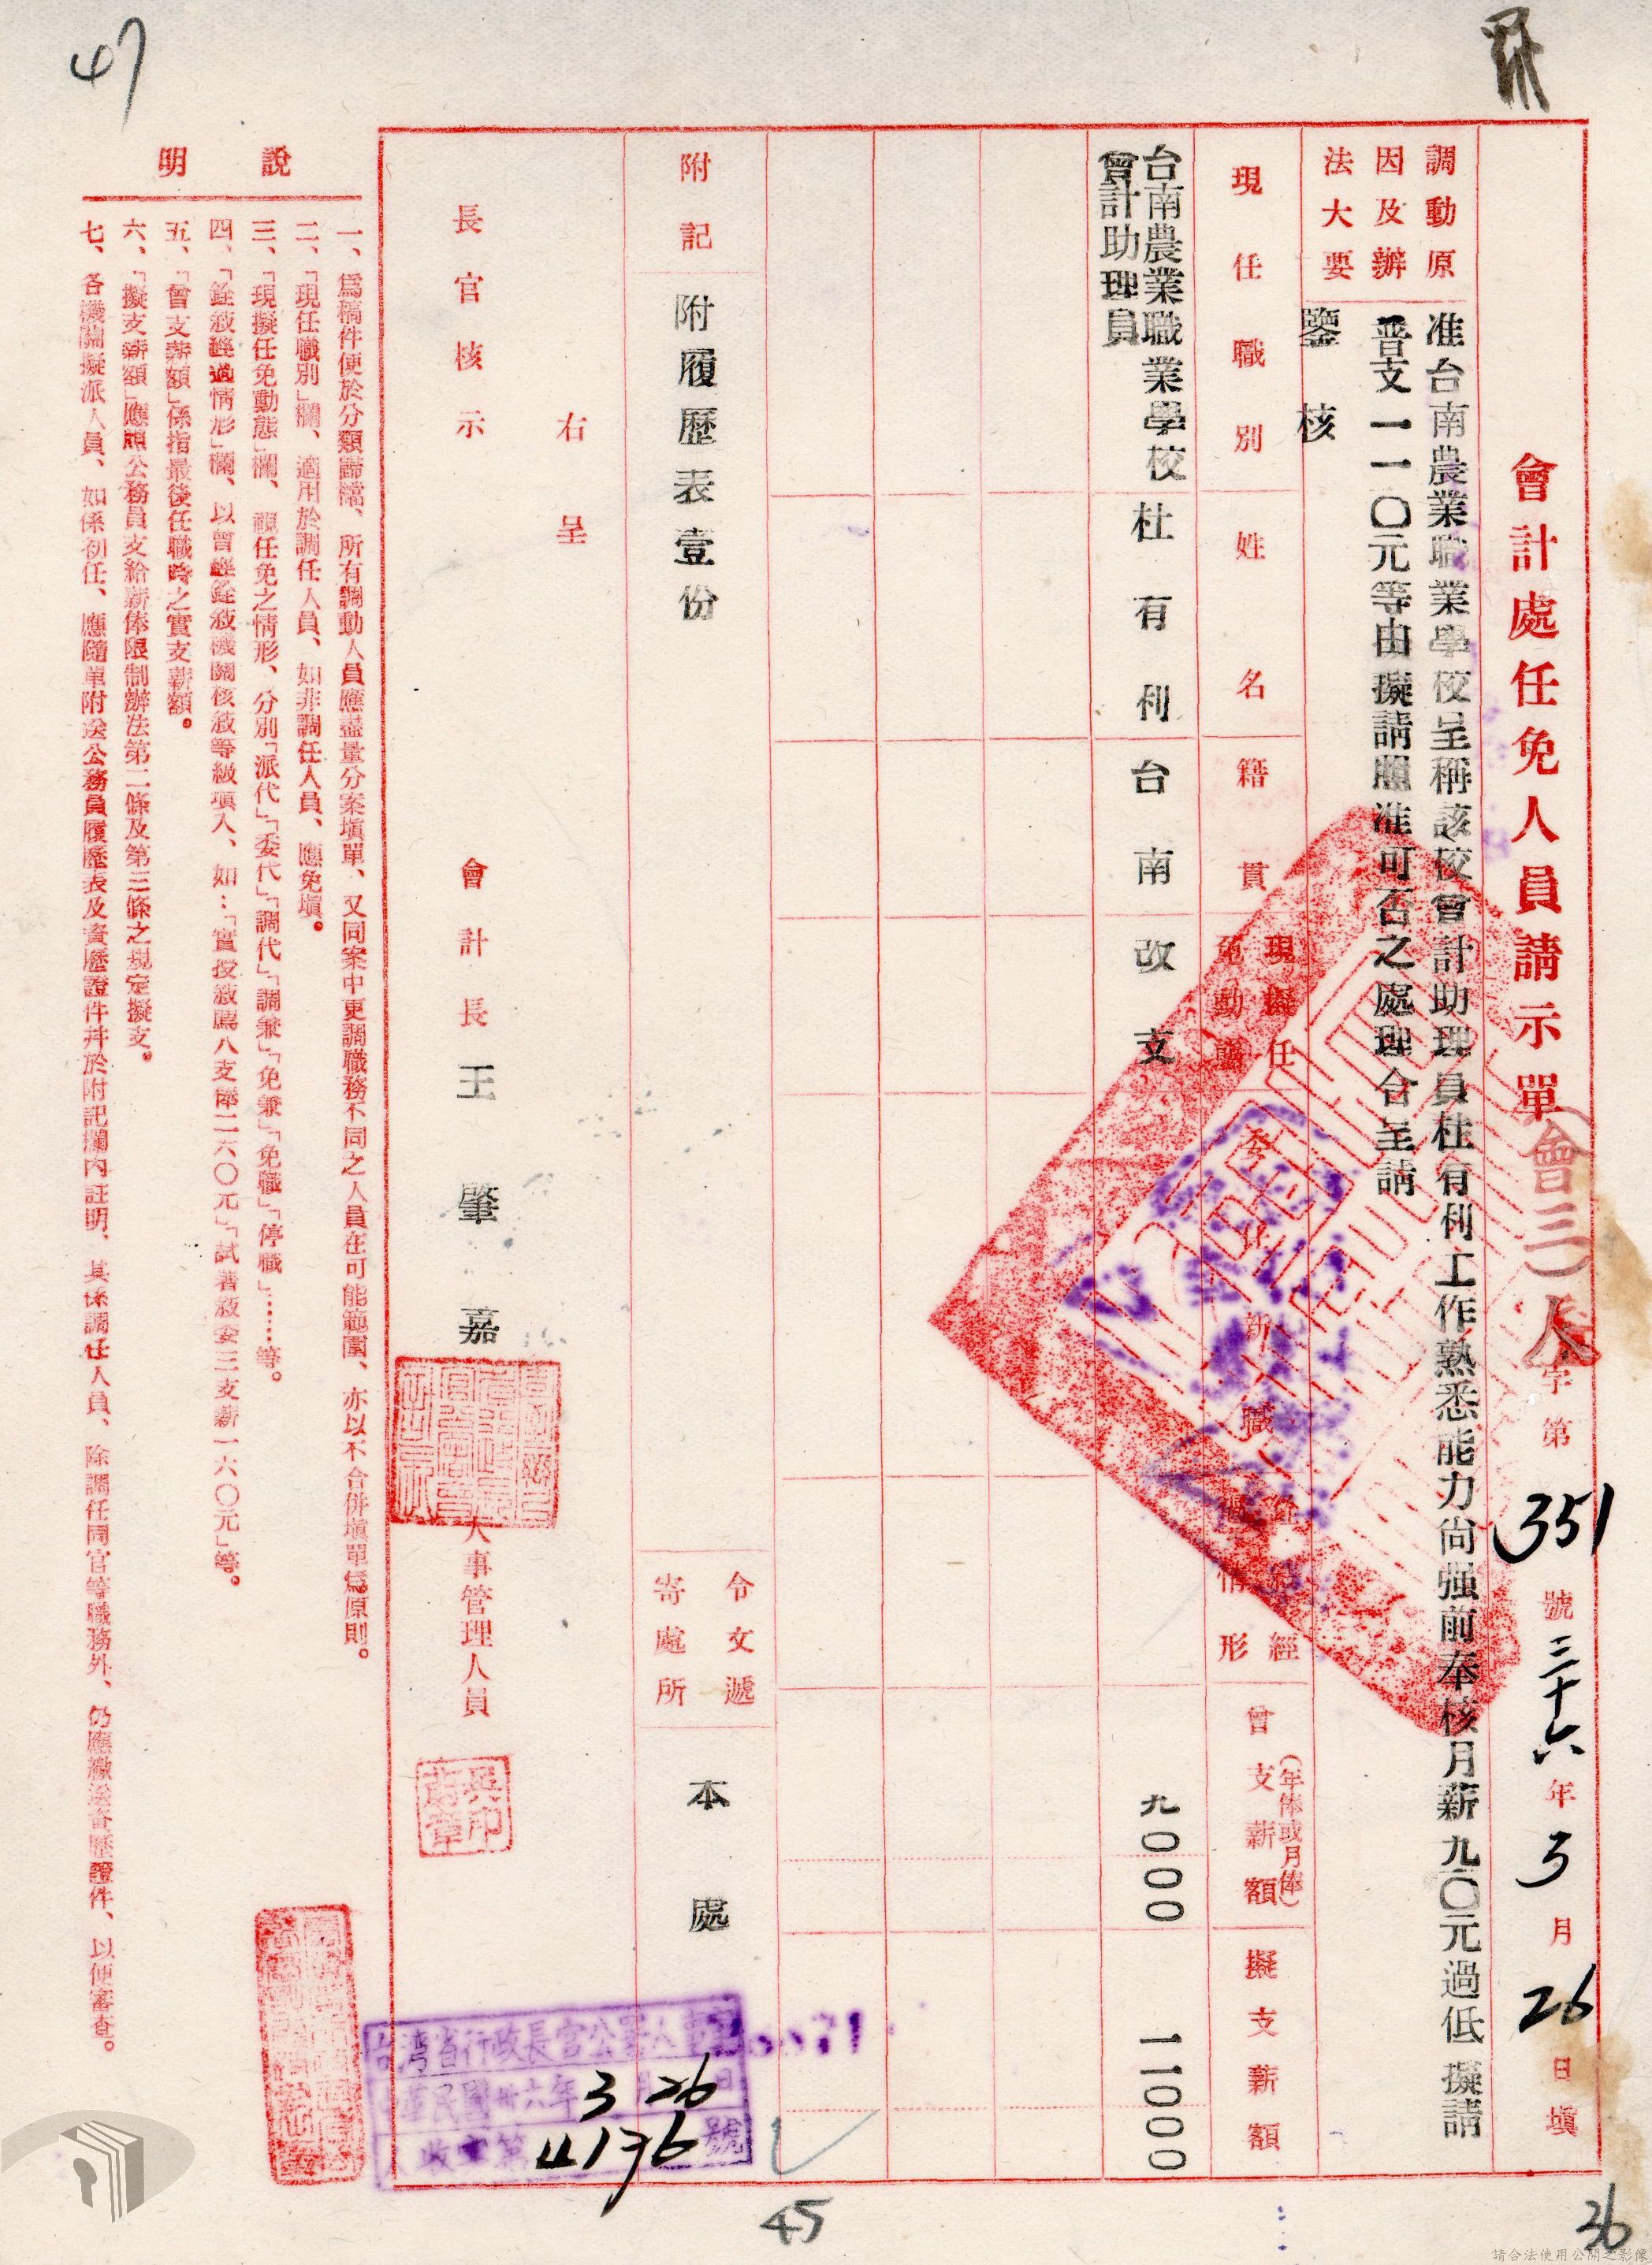 47
會計處任免人員請示單(會三)人字第351號三十六年3月26日填
調動原
因及辦
法大要
准台南農業職業學校呈稱該校會計助理員杜有利工作熟悉能力尚强前奉核月薪九〇元過低擬請
晋支一一〇元等由擬請照准可否之處理合呈請
鑒核
現任職別
姓名
籍貫
現擬任
免動態
委任新職
經
情形
曾支薪額
(年俸或月俸)
擬支薪額
台南農業職業學校
會計助理員
杜有利
台南
改支
九〇〇〇
一一〇〇〇
附記
附履歷表壹份
令文遞
寄處所
本處
右呈
長官核示
會計長王肇嘉
人事管理人員
吳印
章
說明
一、爲稿件便於分類歸檔、所有調動人員應盡量分案塡單、又同案中更調職務不同之人員在可能範圍、亦以不合併塡單爲原則。
二、「現任職別」欄、適用於調任人員、如非調任人員、應免塡。
三、「現擬任免動態」欄、視任免之情形、分別「派代」「委代」「調代」「調兼」「免兼」「免職」「停職」……等。
四、「銓敍經過情形」欄、以曾經銓敍機關核敍等級塡入、如：「實授敍薦八支俸二六〇元」「試署敍委三支薪一六〇元」等。
五、「曾支薪額」係指最後任職時之實支薪額。
六、「擬支薪額」應照公務員支給薪俸限制辦法第二條及第三條之規定擬支。
七、各機關擬派人員、如係初任、應隨單附送公務員履歷表及資歷證件幷於附記欄內註明、其係調任人員、除調任同官等職務外、仍應繳送資歷證件、以便審查。
台灣省行政長官公署人事室
中華民國卅六年3月26日
收文第4136號
45
36
請合法使用公開之影像